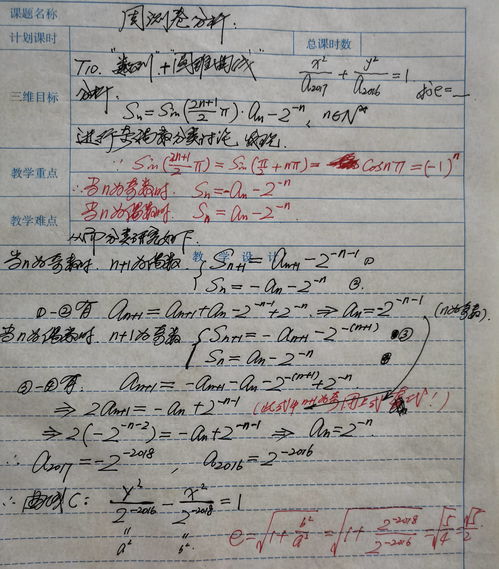 课题名称 周测卷分析.
计划课时 总课时数
T10. "数列"+"圆锥曲线" x²/a₂₀₁₇ + y²/a₂₀₁₆ = 1 求e=__
三维目标 分析:
Sₙ = Sin(2n+1/2 π)·aₙ - 2⁻ⁿ, n∈N*
进行奇偶数分类讨论
∵ Sin(2n+1/2 π) = Sin(π/2 + nπ) = Cosnπ = (-1)ⁿ
教学重点 ∴当n为奇数时. Sₙ = -aₙ - 2⁻ⁿ
当n为偶数时. Sₙ = aₙ - 2⁻ⁿ.
教学难点 如下:
教学设计
当n为奇数时. n+1为偶数. { Sₙ₊₁ = aₙ₊₁ - 2⁻ⁿ⁻¹ ①
Sₙ = -aₙ - 2⁻ⁿ ②.
①-②有 aₙ₊₁ = aₙ₊₁ + aₙ - 2⁻ⁿ⁻¹ + 2⁻ⁿ. ⇒ aₙ = -2⁻ⁿ⁻¹ (n为奇数).
当n为偶数时. n+1为奇数 { Sₙ₊₁ = -aₙ₊₁ - 2⁻⁽ⁿ⁺¹⁾ ③
Sₙ = aₙ - 2⁻ⁿ ④
③-④有. aₙ₊₁ = -aₙ₊₁ - aₙ - 2⁻⁽ⁿ⁺¹⁾ + 2⁻ⁿ
⇒ 2aₙ₊₁ = -aₙ + 2⁻ⁿ⁻¹ (此式中n+1为奇 用上式!)
⇒ 2(-2⁻ⁿ⁻²) = -aₙ + 2⁻ⁿ⁻¹ ⇒ aₙ = 2⁻ⁿ.
∴ a₂₀₁₇ = -2⁻²⁰¹⁸, a₂₀₁₆ = 2⁻²⁰¹⁶
∴ 曲线C: y²/2⁻²⁰¹⁶ - x²/2⁻²⁰¹⁸ = 1
e = √(1 + b²/a²) = √(1 + 2⁻²⁰¹⁸/2⁻²⁰¹⁶) = √(5/4) = √5/2
" a² " b²